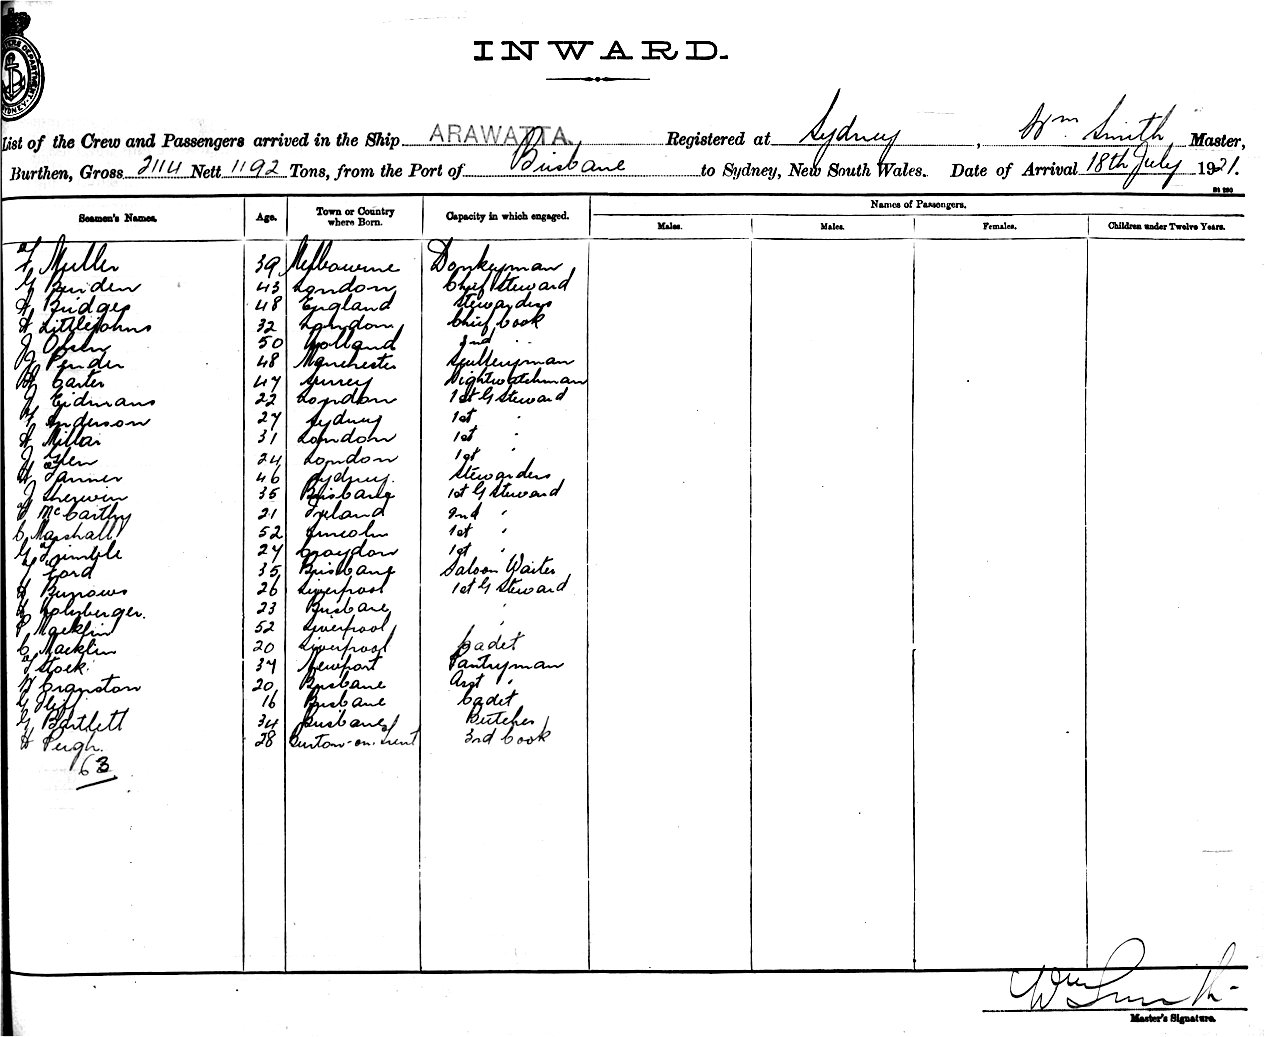 INWARD.
List of the Crew and Passengers arrived in the Ship ARAWATTA. Registered at Sydney, Wm. Smith Master,
Burthen, Gross 2114 Nett 1192 Tons, from the Port of Brisbane to Sydney, New South Wales. Date of Arrival 18th July 1921.
Names of Passengers.
Seamen's Names. Age. Town or Country where Born. Capacity in which engaged. Males. Males. Females. Children under Twelve Years.
Muller 39 Melbourne Donkeyman
G Burden 43 London Chief Steward
H Bridges 48 England Stewardess
H Littlejohns 32 London Chief Cook
J Olsen 50 Holland 2nd "
J Pender 48 Manchester Sculleryman
Carter 47 Surrey Nightwatchman
J Eidmans 22 London 1st G Steward
Anderson 27 Sydney 1st "
A Millar 31 London 1st "
J Glen 24 London 1st "
Tanner 46 Sydney Stewardess
J Sherwin 35 Brisbane 1st G Steward
McCarthy 21 Ireland 2nd "
C Marshall 52 Lincoln 1st "
G Trimble 27 Croydon 1st "
Ford 35 Brisbane Saloon Waiter
Burrows 26 Liverpool 1st G Steward
23 Brisbane "
P Macklin 52 Liverpool "
C Macklin 20 Liverpool Cadet
Stock 37 Newport Pantryman
Cranston 20 Brisbane Asst "
G 16 Brisbane Cadet
G Bartlett 34 Brisbane Butcher
H Pugh 28 Burton-on-Trent 3rd Cook
63
Wm Smith
Master's Signature.